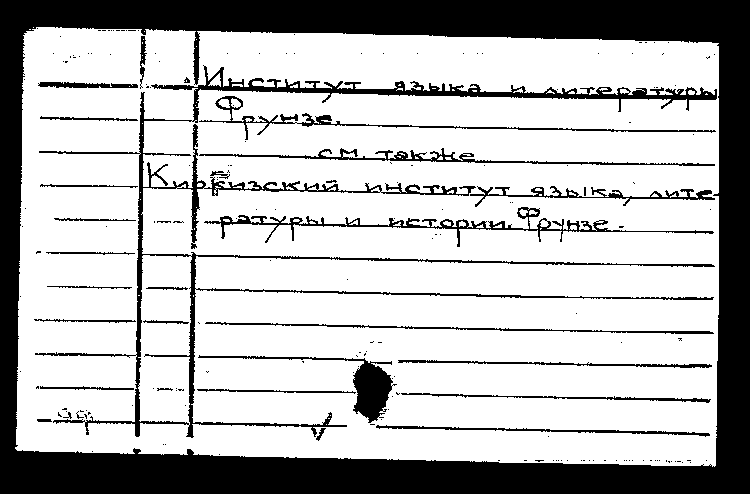 Институт языка и литературы
Фрунзе.
см. также
Киргизский институт языка, лите-
ратуры и истории. Фрунзе.